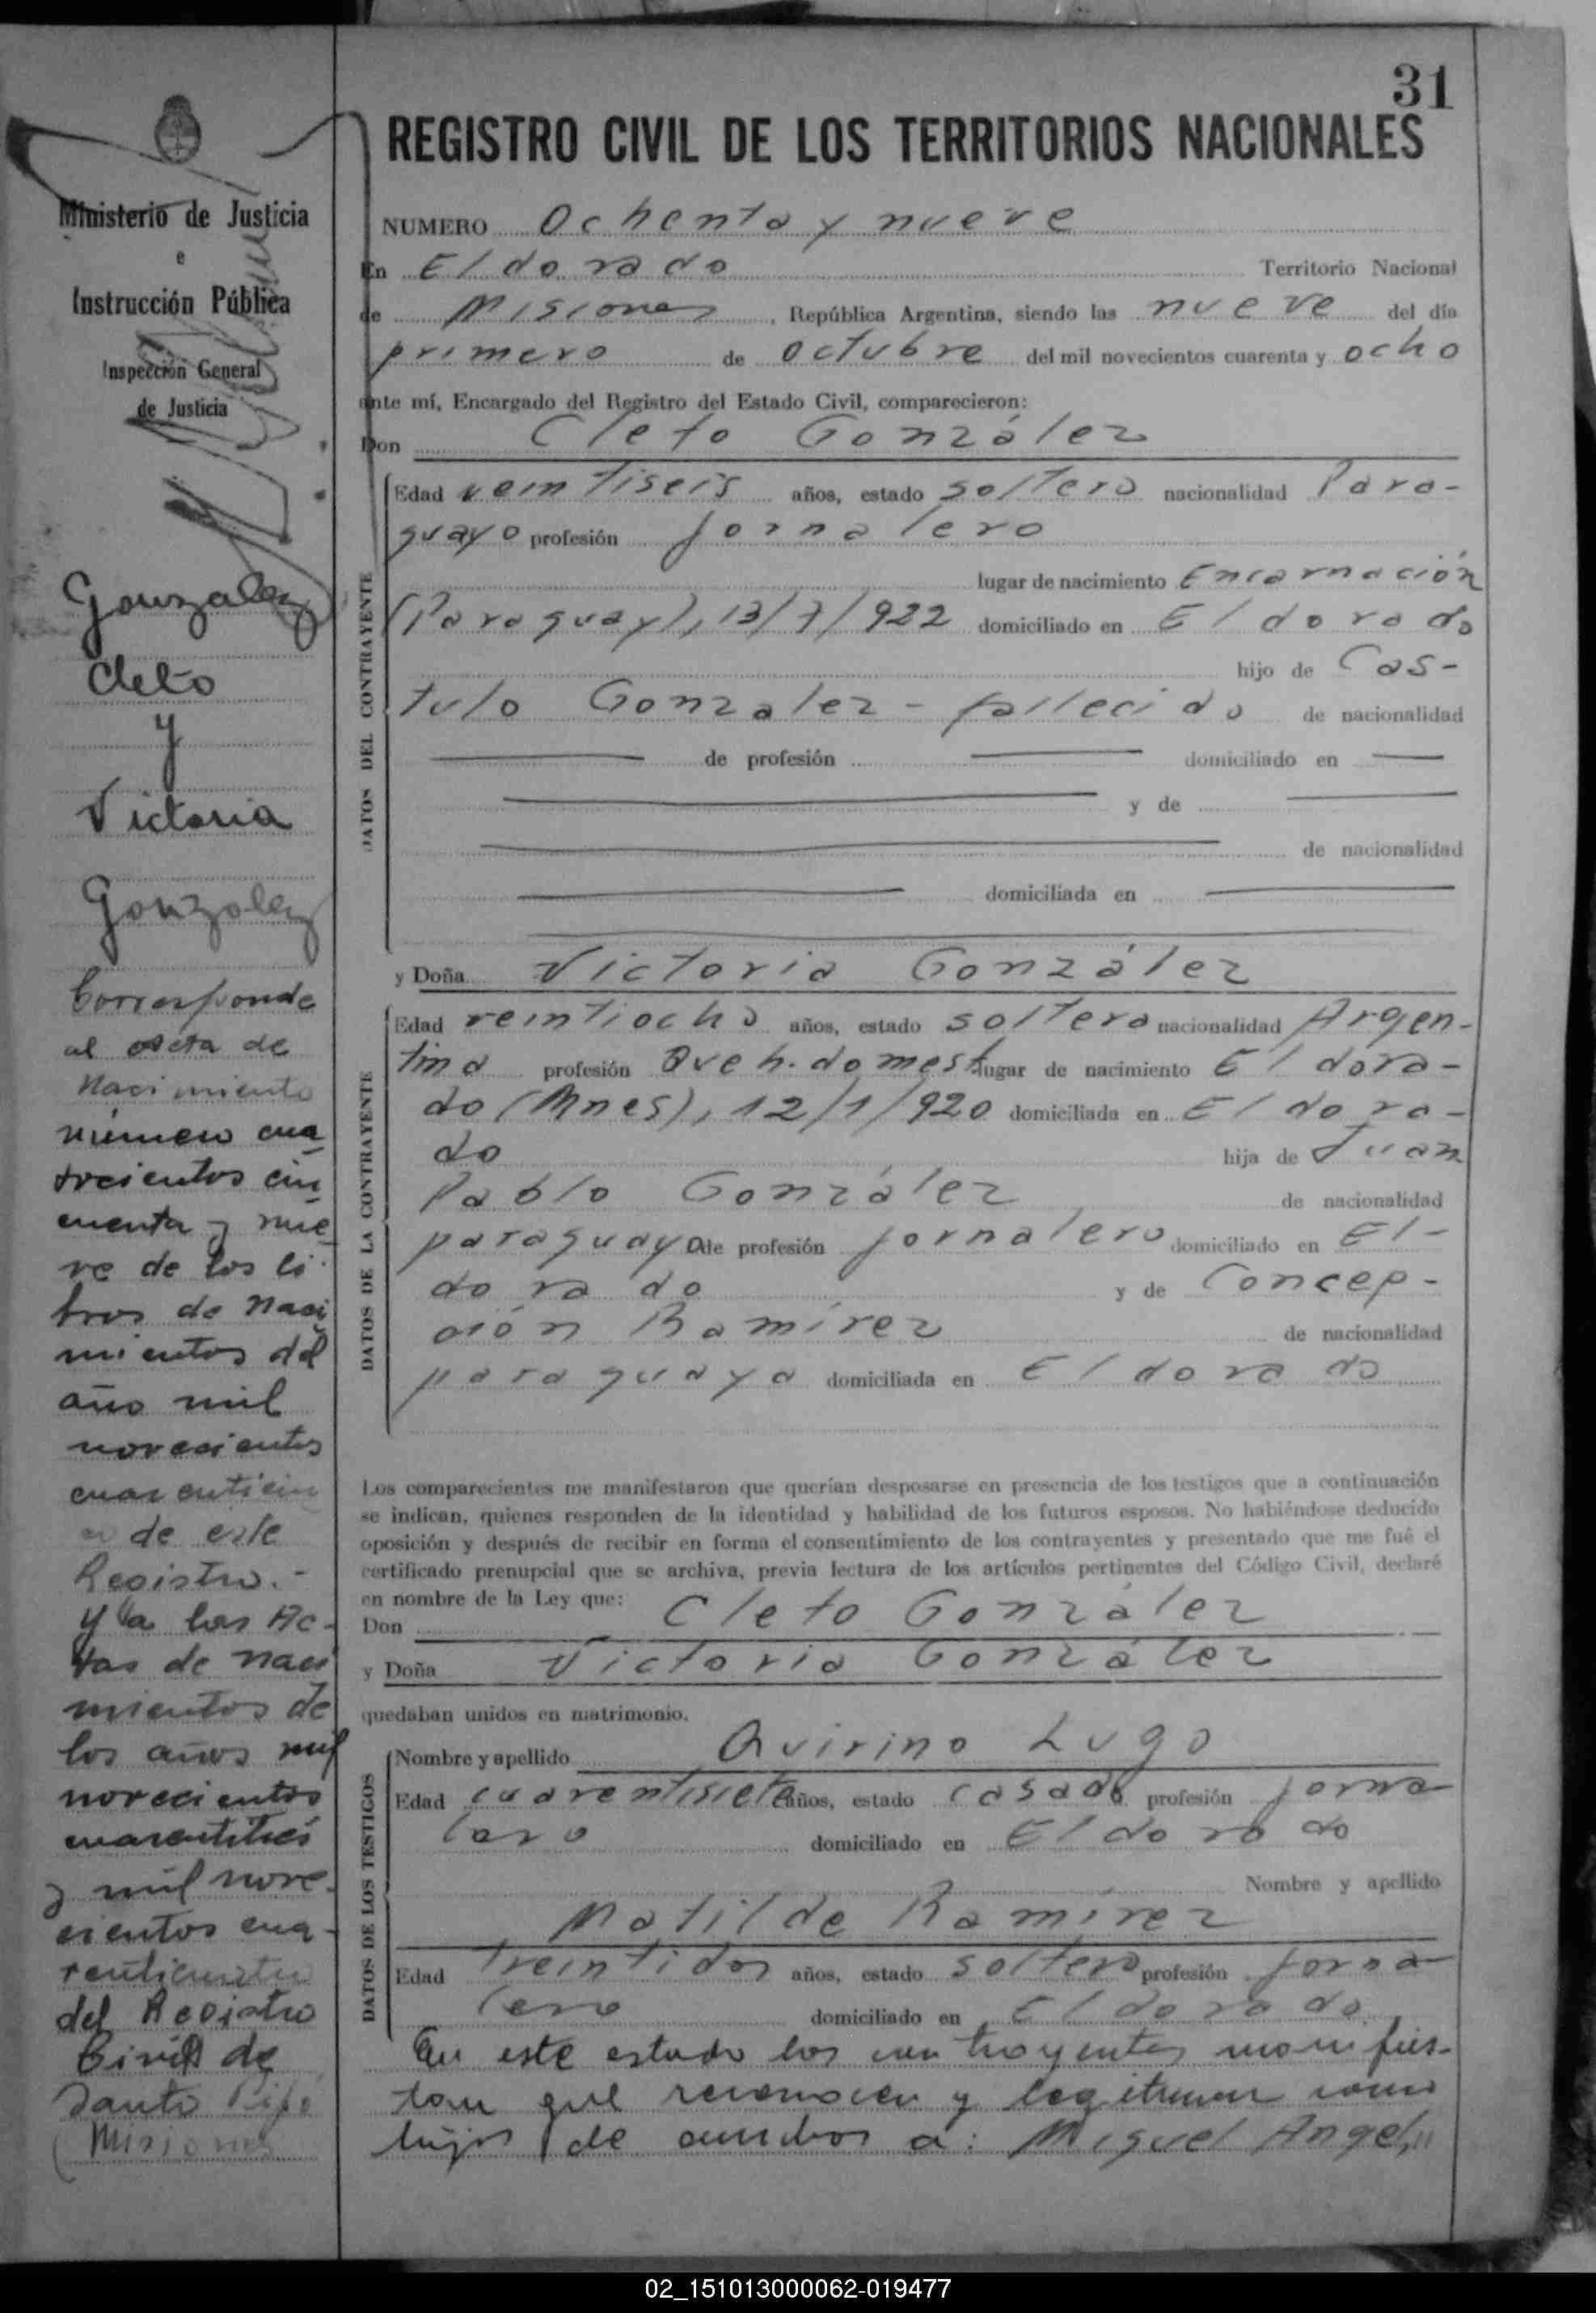 31
REGISTRO CIVIL DE LOS TERRITORIOS NACIONALES
Ministerio de Justicia
e
Instrucción Pública
Inspección General
de Justicia
Gonzalez
Cleto
y
Victoria
Gonzalez
Corresponde
al acta de
Nacimiento
número cua
trocientos cin
cuenta y nue
ve de los li
bros de naci
mientos del
año mil
novecientos
cuarenticin
co de este
Registro.-
y a las Ac-
tas de naci
mientos de
los años mil
novecientos
cuarentitrés
y mil nove-
cientos cua-
renticuatro
del Registro
Civil de
Santo Pipó
(Misiones
NUMERO Ochenta y nueve
En Eldorado Territorio Nacional
de Misiones, República Argentina, siendo las nueve del día
primero de Octubre del mil novecientos cuarenta y ocho
ante mí, Encargado del Registro del Estado Civil, comparecieron:
Don Cleto González
DATOS DEL CONTRAYENTE
Edad veintiseis años, estado soltero nacionalidad Para-
guayo profesión jornalero
lugar de nacimiento Encarnación
(Paraguay), 13/7/922 domiciliado en Eldorado
hijo de Cas-
tulo Gonzalez - fallecido de nacionalidad
de profesión domiciliado en
y de
de nacionalidad
domiciliada en
y Doña Victoria González
DATOS DE LA CONTRAYENTE
Edad veintiocho años, estado soltera nacionalidad Argen-
tina profesión Queh. domest. lugar de nacimiento Eldora-
do (Mnes), 12/1/920 domiciliada en Eldora-
do hija de Juan
Pablo González de nacionalidad
paraguaya de profesión jornalero domiciliado en El-
dorado y de Concep-
ción Ramírez de nacionalidad
paraguaya domiciliada en Eldorado
Los comparecientes me manifestaron que querían desposarse en presencia de los testigos que a continuación
se indican, quienes responden de la identidad y habilidad de los futuros esposos. No habiéndose deducido
oposición y después de recibir en forma el consentimiento de los contrayentes y presentado que me fué el
certificado prenupcial que se archiva, previa lectura de los artículos pertinentes del Código Civil, declaré
en nombre de la Ley que:
Don Cleto González
y Doña Victoria González
quedaban unidos en matrimonio.
DATOS DE LOS TESTIGOS
Nombre y apellido Quirino Lugo
Edad cuarentisiete años, estado casado profesión jorna
lero domiciliado en Eldorado
Nombre y apellido
Matilde Ramírez
Edad treintidos años, estado soltero profesión jorna
lero domiciliado en Eldorado
En este estado los contrayentes manifies-
tan que reconocen y legitiman como
hijos de ambos a: Miguel Angel,
02_151013000062-019477